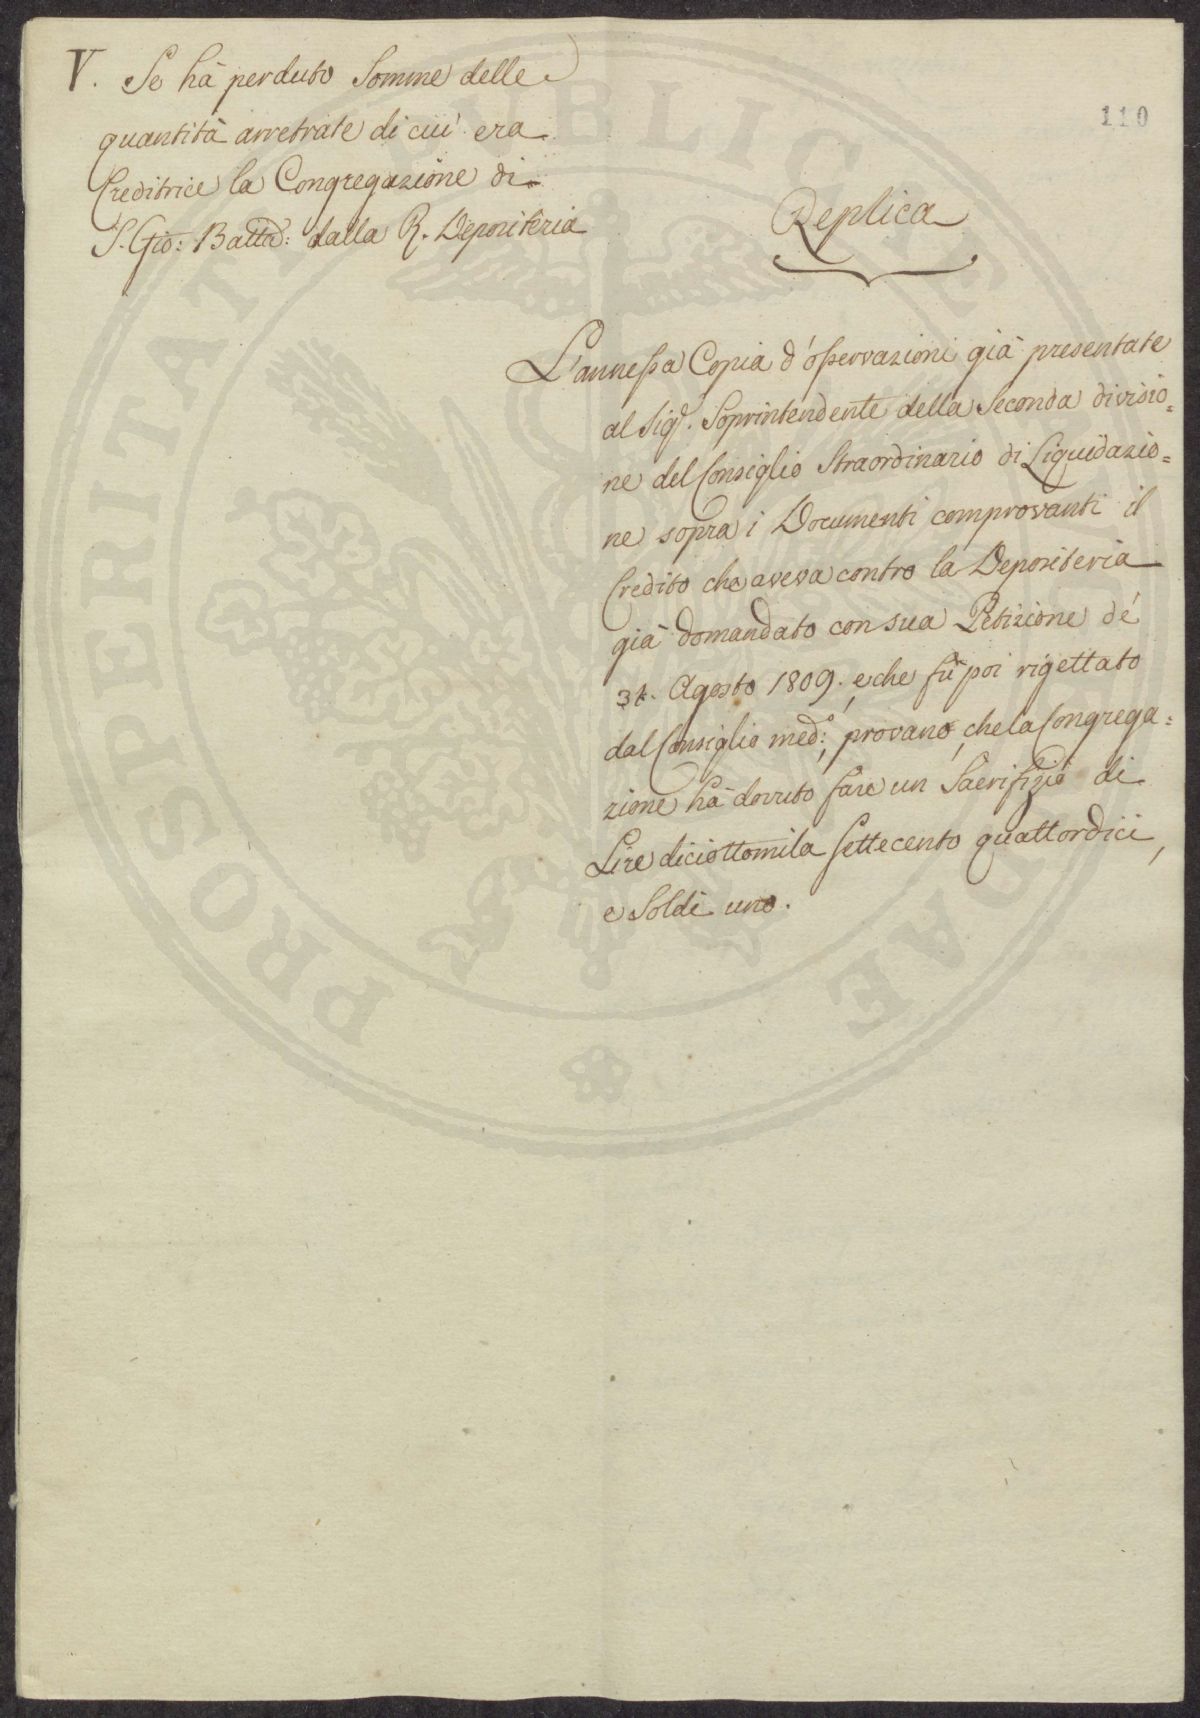 V. Se hà perduto Somme delle
quantità arretrate di cui era
Creditrice la Congregazione di
S. Gio: Batta: dalla R. Depositeria
110
Replica
L'annessa Copia d'osservazioni già presentate
al Sigr. Soprintendente della Seconda divisio=
ne del Consiglio Straordinario di Liquidazio=
ne sopra i Documenti comprovanti il
Credito che aveva contro la Depositeria
già domandato con sua Petizione de'
31. Agosto 1809. e che fù poi rigettato
dal Consiglio medo:, provano, che la Congrega=
zione hà dovuto fare un Sacrifizio di
Lire diciottomila settecento quattordici,
e Soldi uno.
PROSPERITATI PUBLICAE